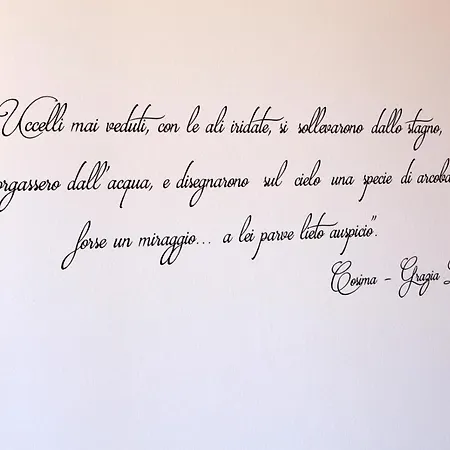 Uccelli mai veduti, con le ali iridate, si sollevarono dallo stagno,
orgassero dall'acqua, e disegnarono sul cielo una specie di arcoba
forse un miraggio... a lei parve lieto auspicio".
Cosima - Grazia